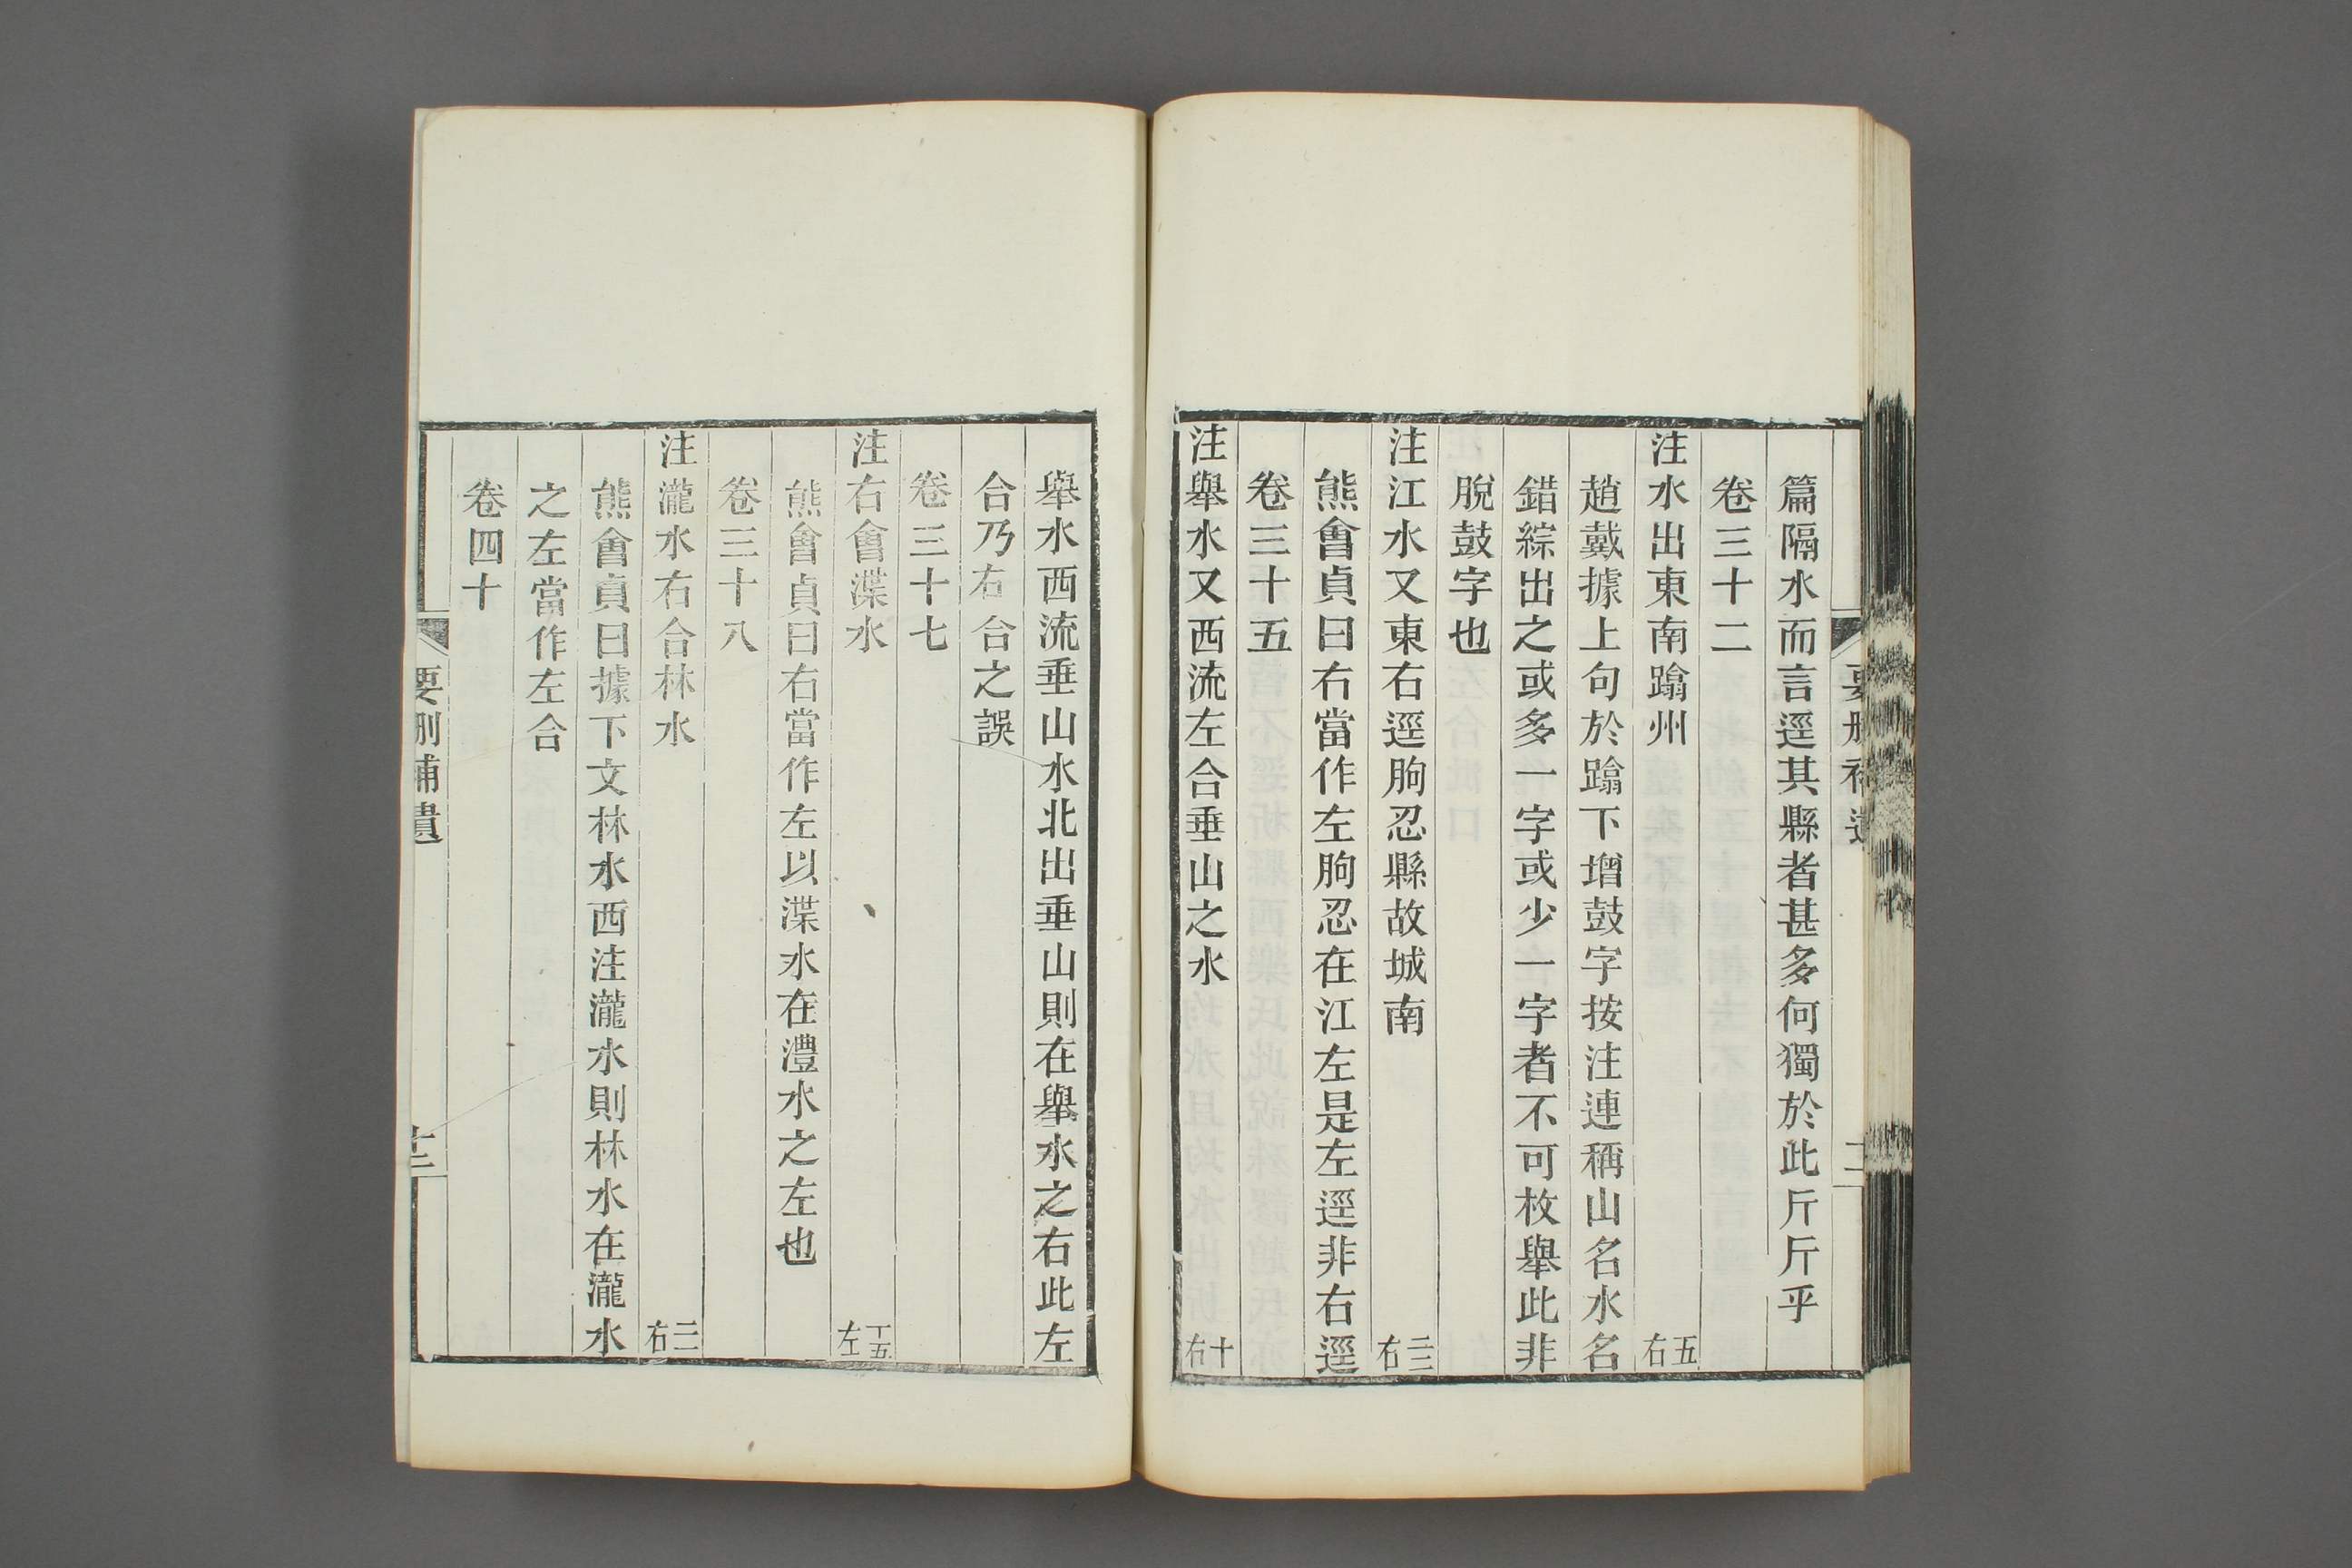 篇隔水而言逕其縣者甚多何獨於此斤斤乎
卷三十二
注水出東南蹹州 五右
趙戴據上句於蹹下增鼓字按注連稱山名水名
錯綜出之或多一字或少一字者不可枚舉此非
脫鼓字也
注江水又東右逕朐忍縣故城南 二三右
熊會貞曰右當作左朐忍在江左是左逕非右逕
卷三十五
注舉水又西流左合垂山之水 十右
舉水西流垂山水北出垂山則在舉水之右此左
合乃右合之誤
卷三十七
注右會渫水 十五左
熊會貞曰右當作左以渫水在澧水之左也
卷三十八
注瀧水右合林水 二二右
熊會貞曰據下文林水西注瀧水則林水在瀧水
之左當作左合
卷四十
要刪補遺